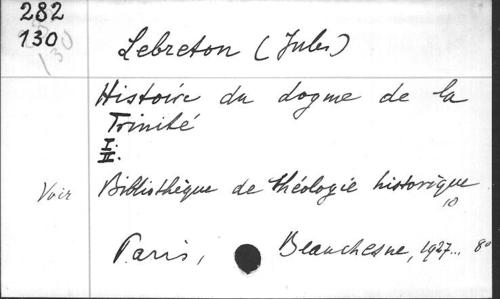 282
130
130
Lebreton (Jules)
Histoire du dogme de la
Trinité
I.
II.
Voir Bibliothèque de théologie historique
10
Paris, Beauchesne, 1927... 8°